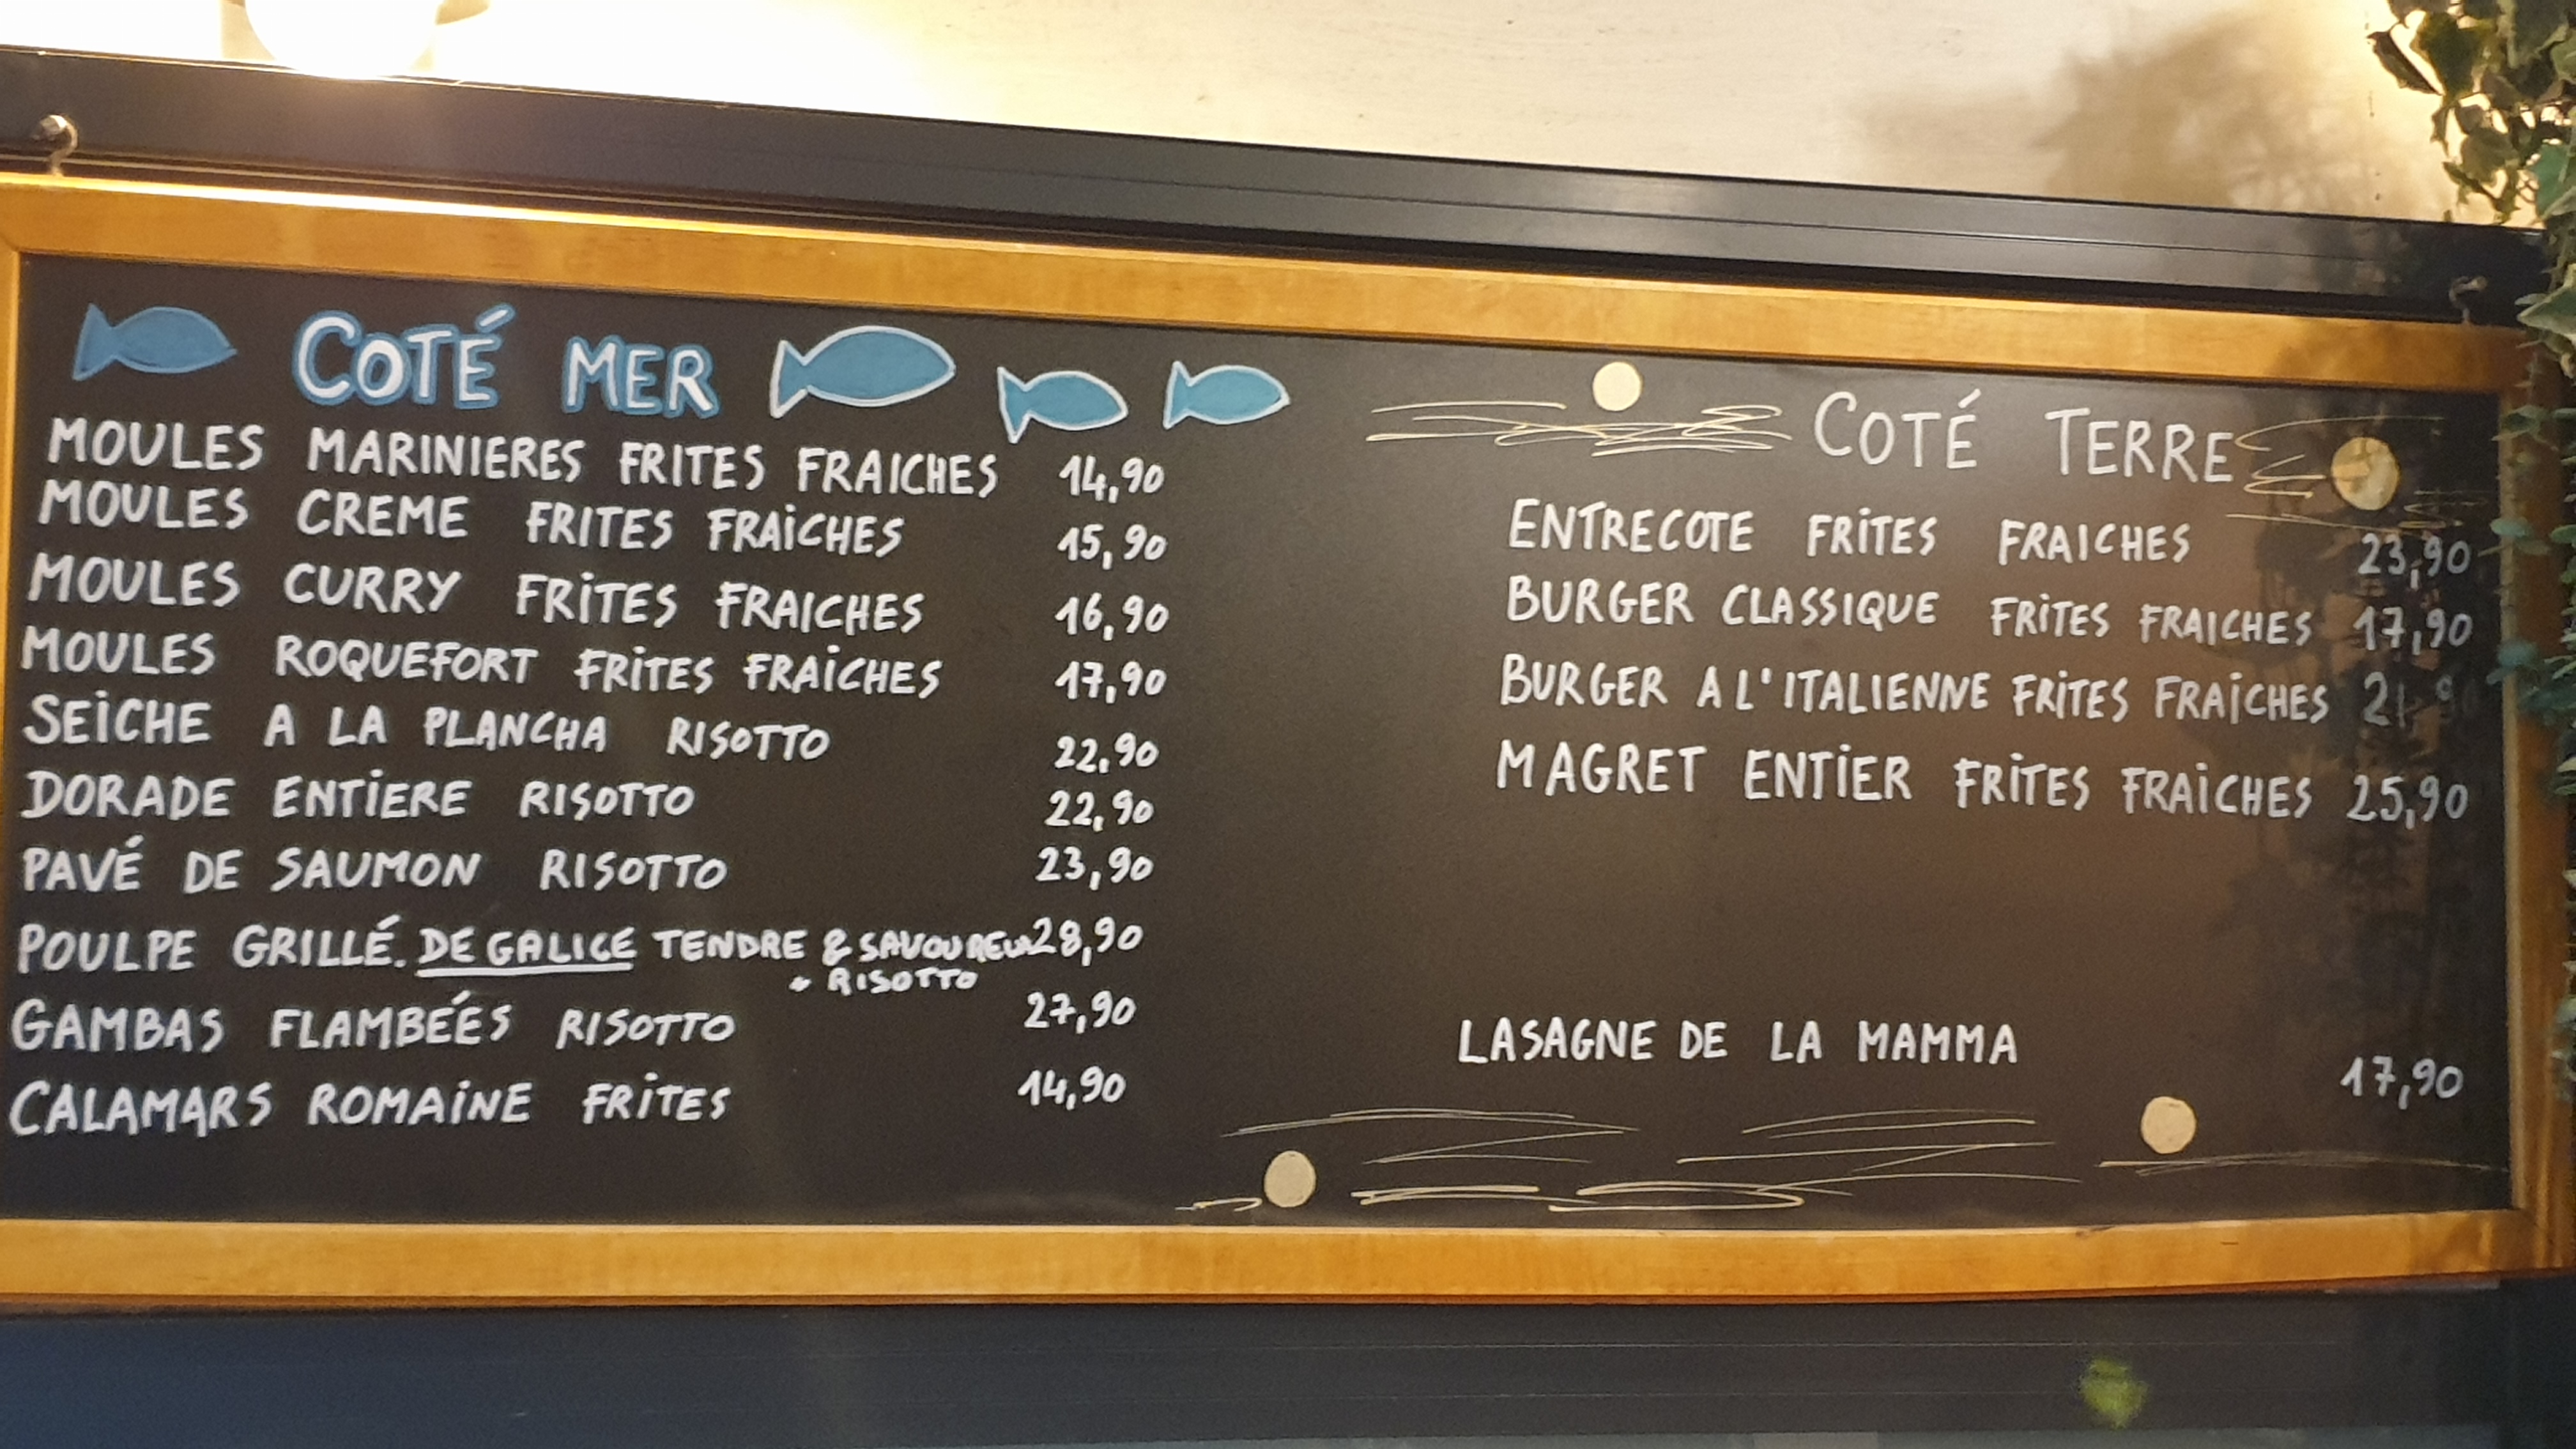 COTÉ MER
MOULES MARINIERES FRITES FRAICHES 14,90
MOULES CREME FRITES FRAICHES 15,90
MOULES CURRY FRITES FRAICHES 16,90
MOULES ROQUEFORT FRITES FRAICHES 17,90
SEICHE A LA PLANCHA RISOTTO 22,90
DORADE ENTIERE RISOTTO 22,90
PAVÉ DE SAUMON RISOTTO 23,90
POULPE GRILLÉ. DE GALICE TENDRE & SAVOUREUX 28,90
RISOTTO
GAMBAS FLAMBÉÉS RISOTTO 27,90
CALAMARS ROMAINE FRITES 14,90
COTÉ TERRE
ENTRECOTE FRITES FRAICHES 23,90
BURGER CLASSIQUE FRITES FRAICHES 17,90
BURGER A L'ITALIENNE FRITES FRAICHES
MAGRET ENTIER FRITES FRAICHES 25,90
LASAGNE DE LA MAMMA 17,90